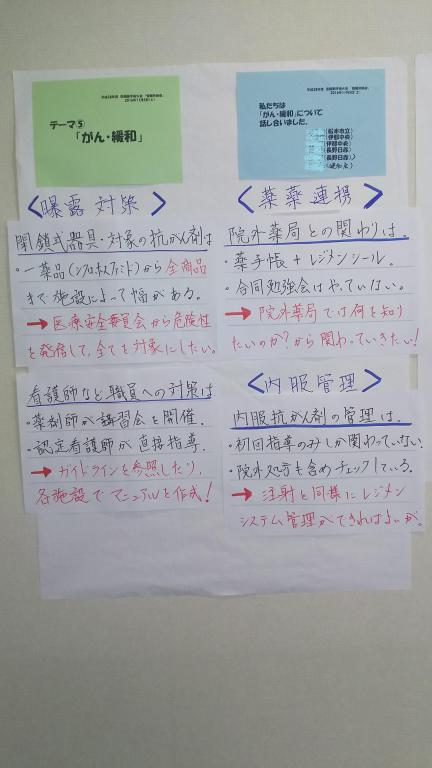 テーマ⑤
「がん・緩和」
私たちは
「がん・緩和」について
話し合いました。
(松本市立)
(伊那中央)
(伊那中央)
(長野日赤)
(長野日赤)
<曝露対策>
閉鎖式器具・対象の抗がん剤は
・一薬品(シクロホスファミド)から全商品
まで施設によって幅がある。
→医療安全委員会から危険性
を発信して、全てを対象にしたい。
看護師など職員への対策は
・薬剤師が講習会を開催.
・認定看護師が直接指導.
→ガイドラインを参照したり、
各施設でマニュアルを作成!
<薬薬連携>
院外薬局との関わりは.
・薬手帳+レジメンシール。
・合同勉強会はやっていない。
→院外薬局では何を知り
たいのか?から関わっていきたい!
<内服管理>
内服抗がん剤の管理は.
・初回指導のみしか関わっていない
・院外処方も含めチェックしている。
→注射と同様にレジメン
システム管理ができればよいが。